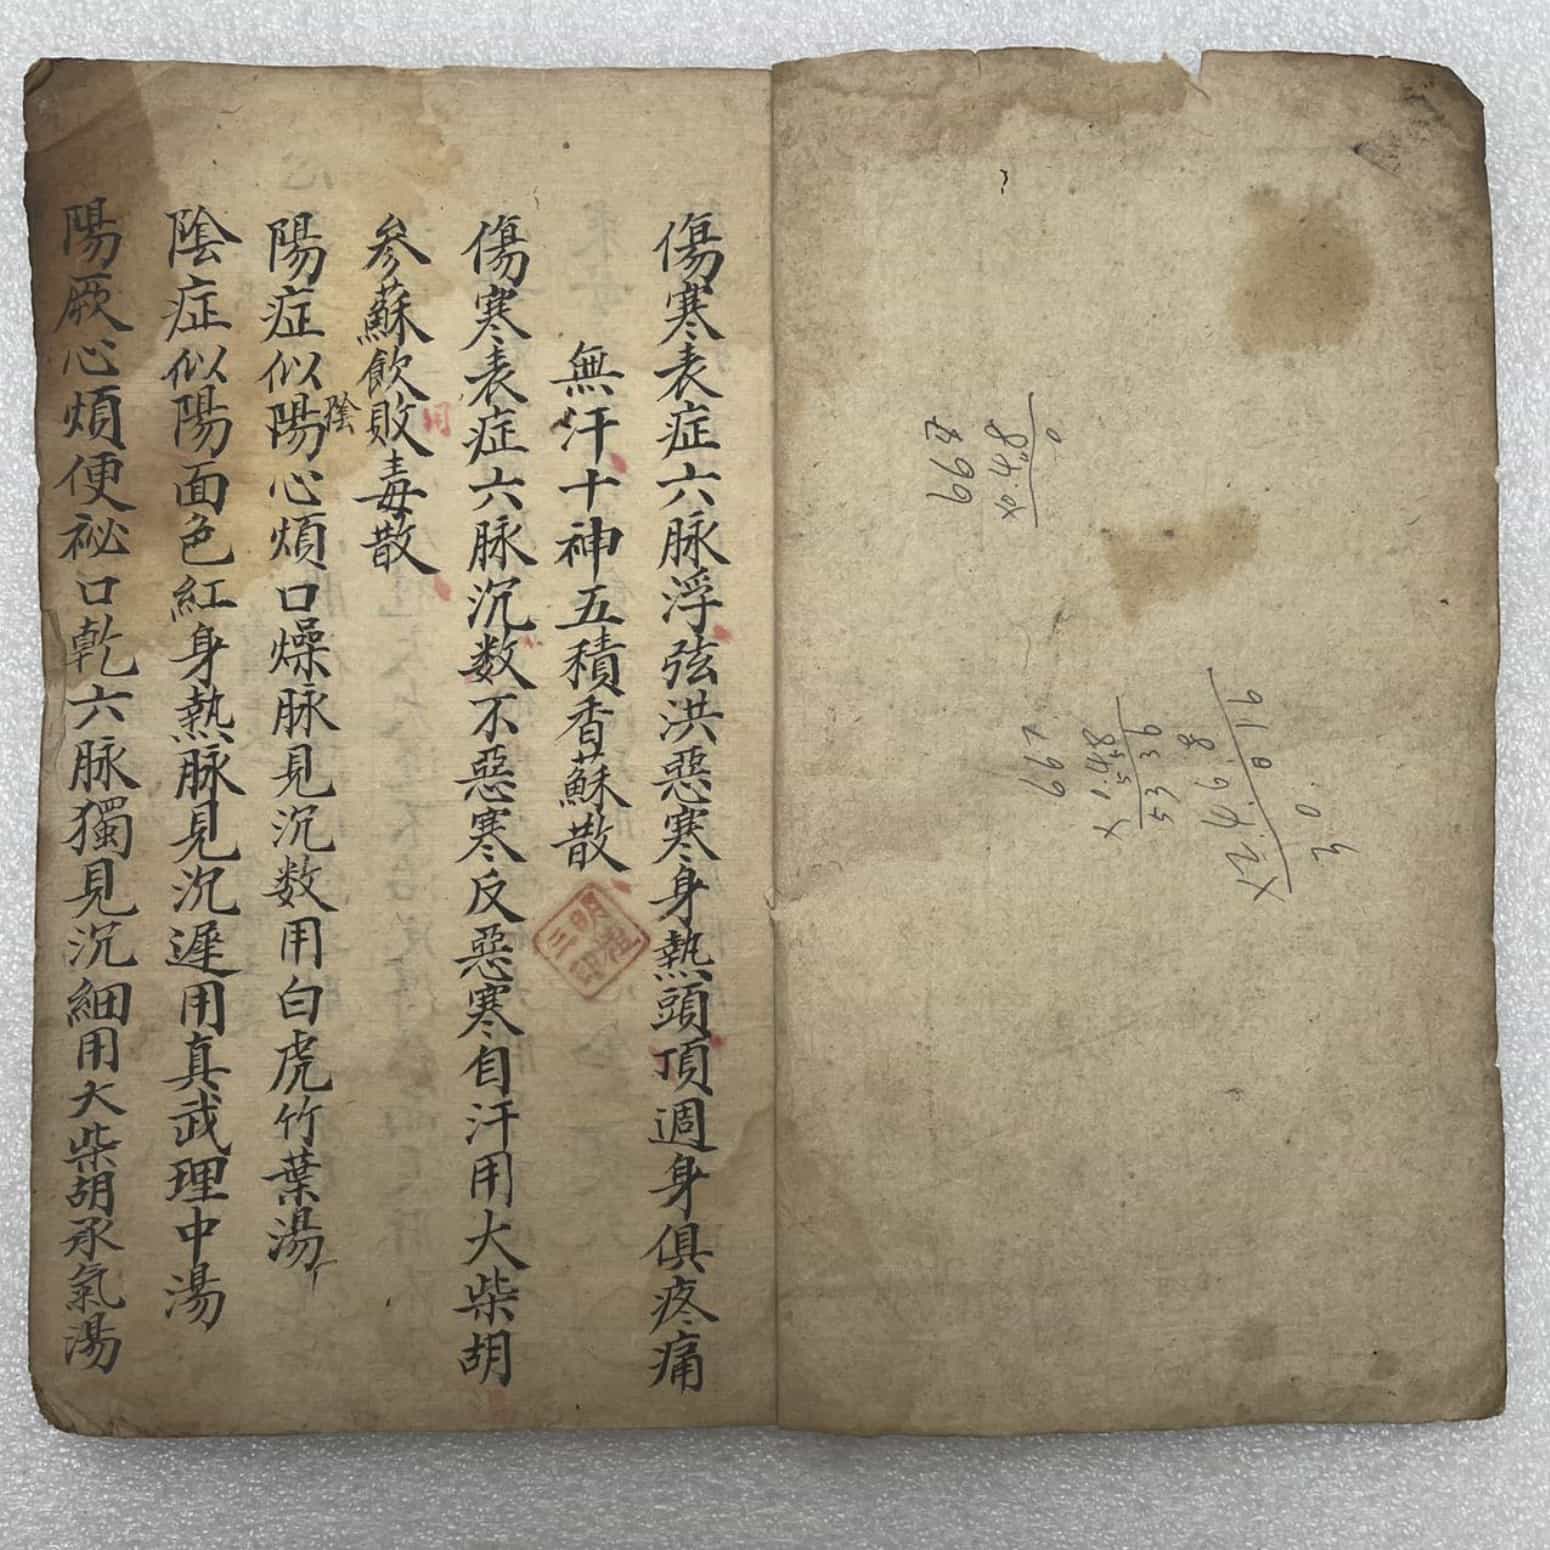 傷寒表症六脉浮弦洪惡寒身熱頭頂週身俱疼痛
無汗十神五積香蘇散
傷寒表症六脉沉数不惡寒反惡寒自汗用大柴胡
参蘇飲敗毒散
用
陽症似陽心煩口燥脉見沉数用白虎竹葉湯
陰
陰症似陽面色紅身熱脉見沉遲用真武理中湯
陽厥心煩便祕口乾六脉獨見沉細用大柴胡承氣湯
667